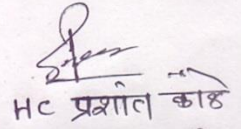 HC प्रशांत काळे